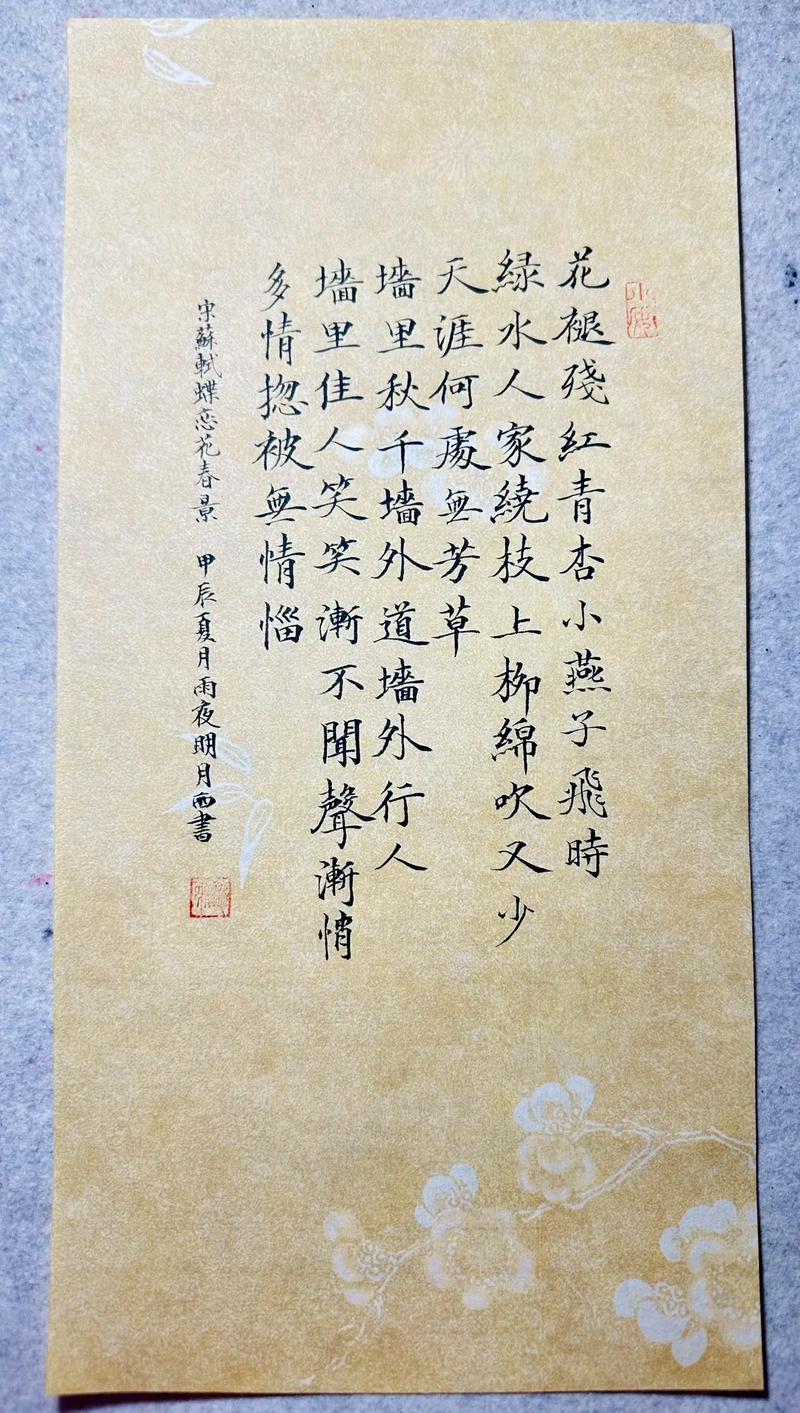 花褪殘紅青杏小燕子飛時
緑水人家繞枝上柳綿吹又少
天涯何處無芳草
墻里秋千墻外道墻外行人
墻里佳人笑笑漸不聞聲漸悄
多情揔被無情惱
宋蘇軾蝶恋花春景 甲辰夏月雨夜明月西書